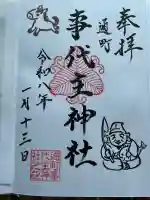 奉拝
通町
事代主神社
令和八年
一月十三日